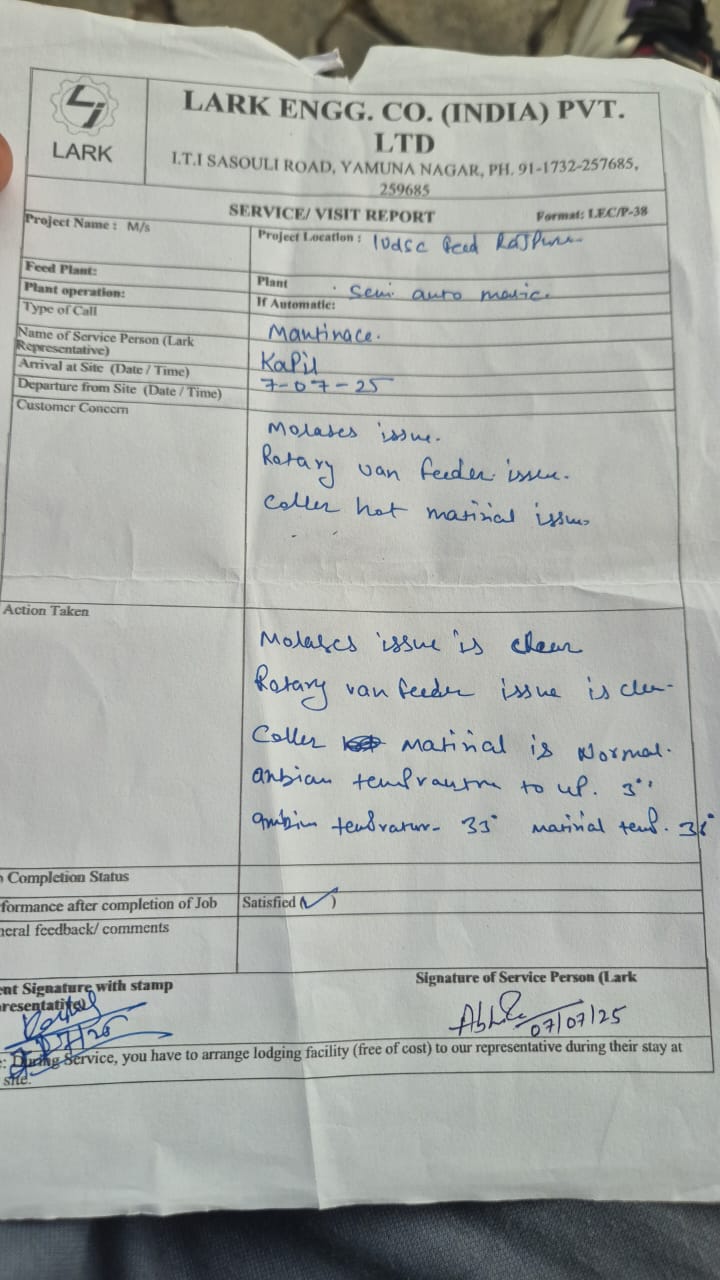 LARK
LARK ENGG. CO. (INDIA) PVT.
LTD
I.T.I SASOULI ROAD, YAMUNA NAGAR, PH. 91-1732-257685,
259685
SERVICE/ VISIT REPORT
Format: LEC/P-38
Project Name : M/s
Project Location : feed
Feed Plant:
Plant
Plant operation:
Semi auto matic.
If Automatic:
Type of Call
Mantinace.
Name of Service Person (Lark
Representative)
Kapil
Arrival at Site (Date / Time)
7-07-25
Departure from Site (Date / Time)
Customer Concern
Molases issue.
Rotary van feeder issue.
Coller hot matirial issue
Action Taken
Molases issue is clear
Rotary van feeder issue is
Coller matirial is Normal.
to up. 3°
33° matirial temp.
Completion Status
formance after completion of Job
Satisfied (✓)
neral feedback/ comments
ent Signature with stamp
presentative)
Signature of Service Person (Lark
07/07/25
: During Service, you have to arrange lodging facility (free of cost) to our representative during their stay at
site.